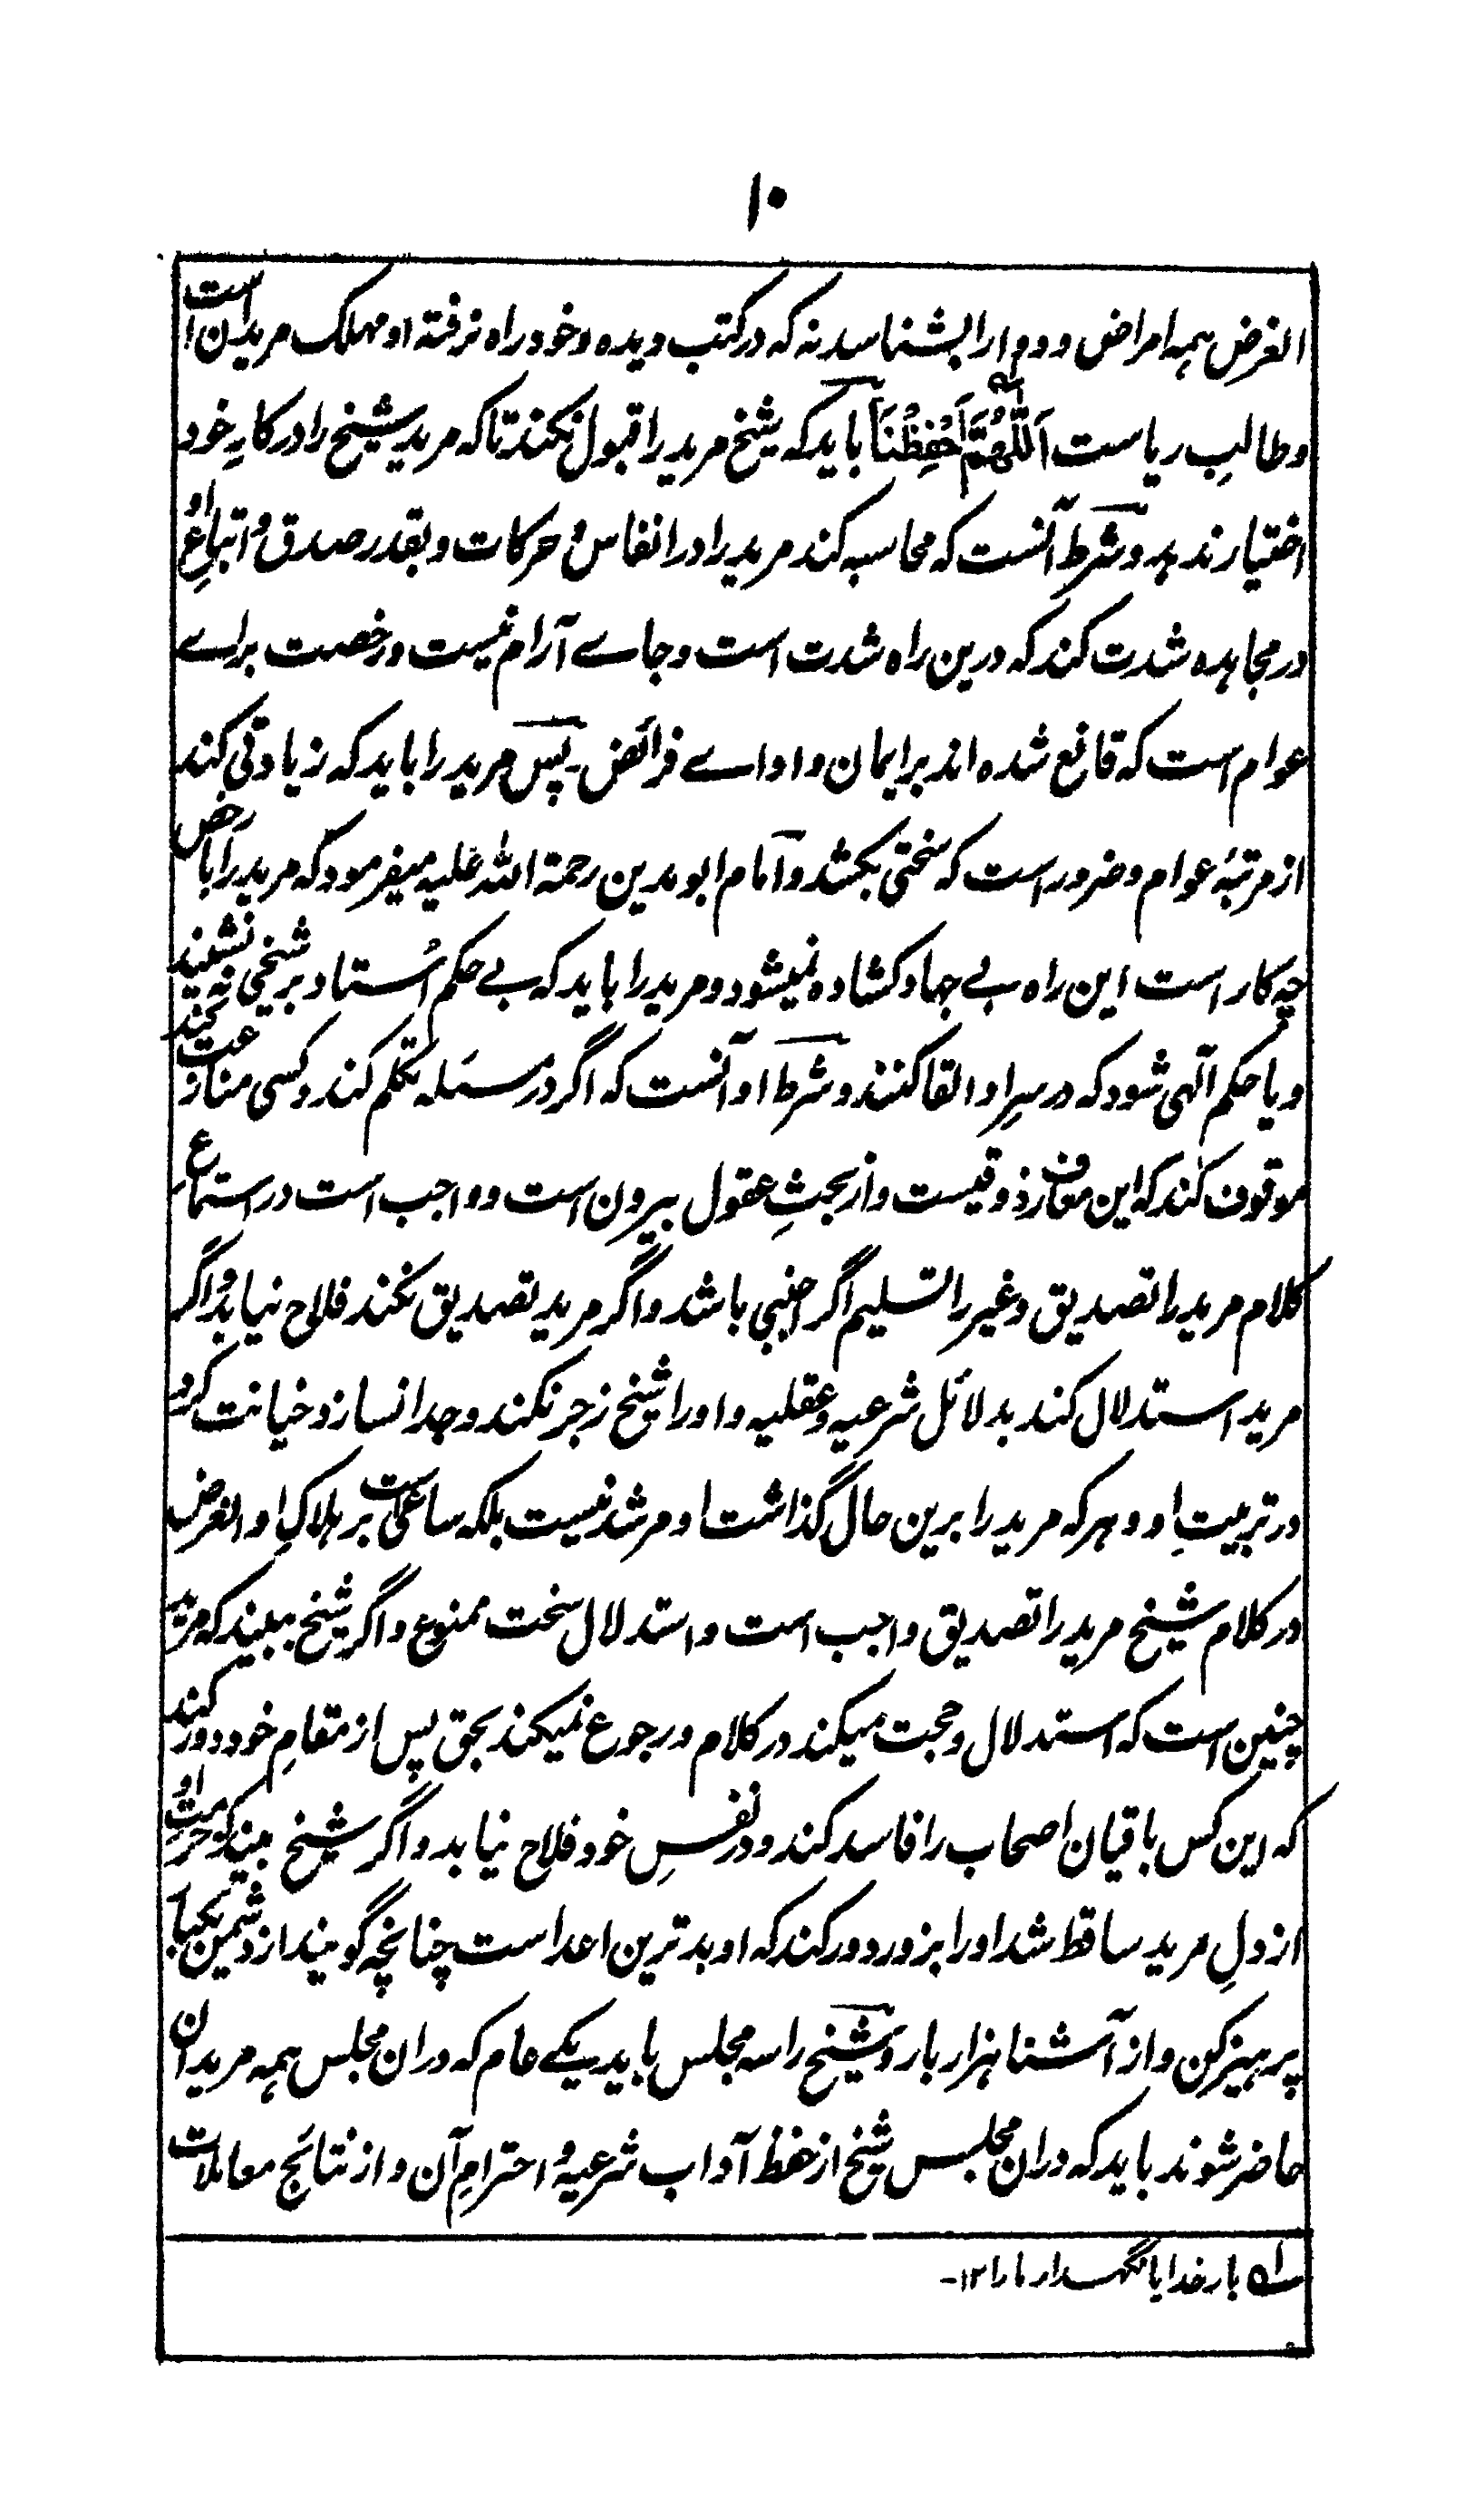 ۱۰
الغرض ہمہ امراض و دوا را بشناسد نہ کہ در کتب دیدہ و خود راہ نرفتہ او مہلک مریدان است
و طالبِ ریاست اَللّٰهُمَّ احْفِظْنَا باید کہ شیخ مرید را قبول نکند تا کہ مرید شیخ را در کارِ خود
اختیار ندہد و شرط آنست کہ محاسبہ کند مرید را در انفاس و حرکات و بقدر صدق و اتباعِ او
در مجاہدہ شدت کند کہ درین راہ شدت است و جاے آرام نیست و رخصت براے
عوام است کہ قانع شدہ اند بر ایمان و اداے فرائض۔ پس مرید را باید کہ زیادتی کند
از مرتبۂ عوام و ضرور است کہ سختی بکشد و امام ابو مدین رحمۃ اللہ علیہ میفرمود کہ مرید را با رخص
چہ کار است این راہ بے جہاد کشادہ نمیشود و مرید را باید کہ بے حکم اُستاد بر شیخی نہ نشیند
و یا حکم الٰہی شود کہ در سرِ او القا کنند و شرط او آنست کہ اگر در مسئلہ تکلم کند و کسی منازعت کند
موقوف کند کہ این معارف ذوقیست و از بحثِ عقول بیرون است و واجب است در استماع
کلام مرید را تصدیق و غیر را تسلیم اگر اجنبی باشد و اگر مرید تصدیق نکند فلاح نیابد و اگر
مرید استدلال کند بدلائل شرعیہ و عقلیہ و او را شیخ زجر نکند و جدا نسازد خیانت کرد
در تربیتِ او و ہر کہ مرید را برین حال گذاشت او مرشد نیست بلکہ ساعی است بر ہلاکِ او الغرض
در کلام شیخ مرید را تصدیق واجب است و استدلال سخت ممنوع و اگر شیخ ببیند کہ مرید
چنین است کہ استدلال و حجت میکند در کلام و رجوع نمیکند بحق پس از مقامِ خود دور کند
کہ این کس باقیان اصحاب را فاسد کند و در نفسِ خود فلاح نیابد و اگر شیخ بیند کہ حرمتِ او
از دلِ مرید ساقط شد او را بزور دور کند کہ او بدترین اعدا است چنانچہ گویند از دشمن یکبار
پرہیز کن و از آشنا ہزار بار و شیخ را سہ مجلس باید یکے عام کہ دران مجلس ہمہ مریدان
حاضر شوند باید کہ دران مجلس شیخ از حفظ آداب شرعیہ و احترامِ آن و از نتائج معاملات
ـلہ بار خدایا نگہدار ما را ۱۲-